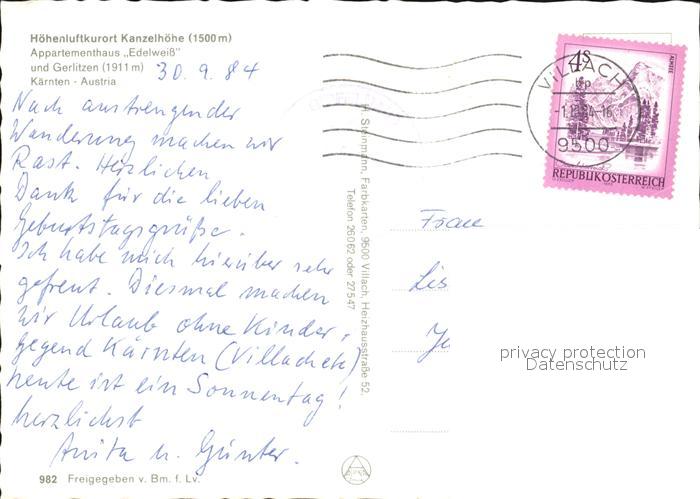 Höhenluftkurort Kanzelhöhe (1500 m)
Appartementhaus „Edelweiß"
und Gerlitzen (1911 m)
Kärnten - Austria
30.9.84
Nach anstrengender
Wanderung machen wir
Rast. Herzlichen
Dank für die lieben
Geburtstagsgrüße.
Ich habe mich hierüber sehr
gefreut. Diesmal machen
wir Urlaub ohne Kinder,
gegend Kärnten (Villach
heute ist ein Sonnentag!
herzlichst
Anita u. Günter.
982 Freigegeben v. Bm. f. Lv.
Steinpruun, Farbkarten, 9500 Villach, Heizhausstraße 52,
Telefon 26062 oder 27547
4S
ALMSEE
REPUBLIK ÖSTERREICH
VILLACH
-1.10.84-16
9500
Frau
Lis
Je
privacy protection
Datenschutz